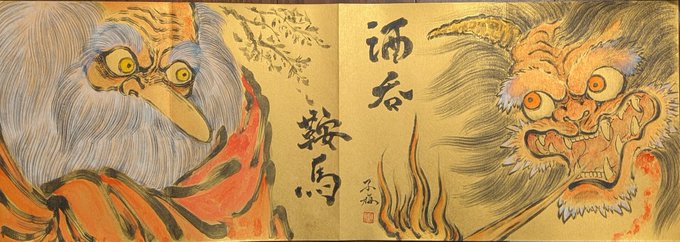 酒呑
鞍馬